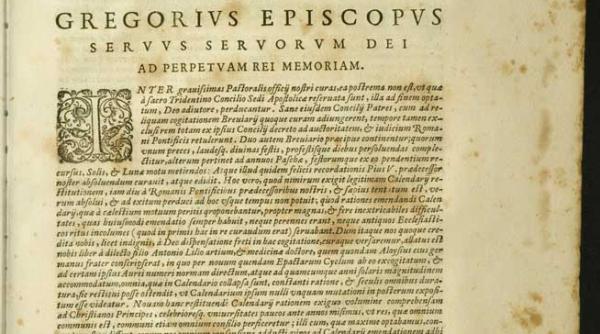 GREGORIVS EPISCOPVS
SERVVS SERVORVM DEI
AD PERPETVAM REI MEMORIAM.
INTER grauissimas Pastoralis officij nostri curas, ea postrema non est, vt quæ
à sacro Tridentino Concilio Sedi Apostolicæ reseruata sunt, illa ad finem opta-
tum, Deo adiutore, perducantur. Sane eiusdem Concilij Patres, cum ad re-
liquam cogitationem Breuiarij quoque curam adiungerent, tempore tamen ex-
clusi rem totam ex ipsius Concilij decreto ad auctoritatem, & iudicium Roma-
ni Pontificis retulerunt. Duo autem Breuiario præcipue continentur; quorum
vnum preces, laudesq. diuinas festis, profestisque diebus persoluendas comple-
ctitur, alterum pertinet ad annuos Paschæ, festorumque ex eo pendentium re-
cursus, Solis, & Lunæ motu metiendos: Atque illud quidem felicis recordationis Pius V. prædecessor
noster absoluendum curauit, atque edidit. Hoc vero, quod nimirum exigit legitimam Calendarij re-
stitutionem, iam diu à Romanis Pontificibus prædecessoribus nostris, & sæpius tentatum est, ve-
rum absolui, & ad exitum perduci ad hoc vsque tempus non potuit; quod rationes emendandi Calen-
darij, quæ à cælestium motuum peritis proponebantur, propter magnas, & fere inextricabiles difficul-
tates, quas huiusmodi emendatio semper habuit, neque perennes erant, neque antiquos Ecclesiasti-
cos ritus incolumes (quod in primis hac in re curandum erat) seruabant. Dum itaque nos quoque cre-
dita nobis, licet indignis, à Deo dispensatione freti in hac cogitatione, curaque versaremur, allatus est
nobis liber à dilecto filio Antonio Lilio artium, & medicinæ doctore, quem quondam Aloysius eius ger-
manus frater conscripserat, in quo per nouum quendam Epactarum Cyclum ab eo excogitatum, &
ad certam ipsius Aurei numeri normam directum, atque ad quamcumque anni solaris magnitudinem
accommodatum, omnia, quæ in Calendario collapsa sunt, constanti ratione, & seculis omnibus dura-
tura, sic restitui posse ostendit, vt Calendarium ipsum nulli vnquam mutationi in posterum exposi-
tum esse videatur. Nouam hanc restituendi Calendarij rationem exiguo volumine comprehensam
ad Christianos Principes, celebrioresq. vniuersitates paucos ante annos misimus, vt res, quæ omnium
communis est, communi etiam omnium consilio perficeretur; illi cum, quæ maxime optabamus, concor-